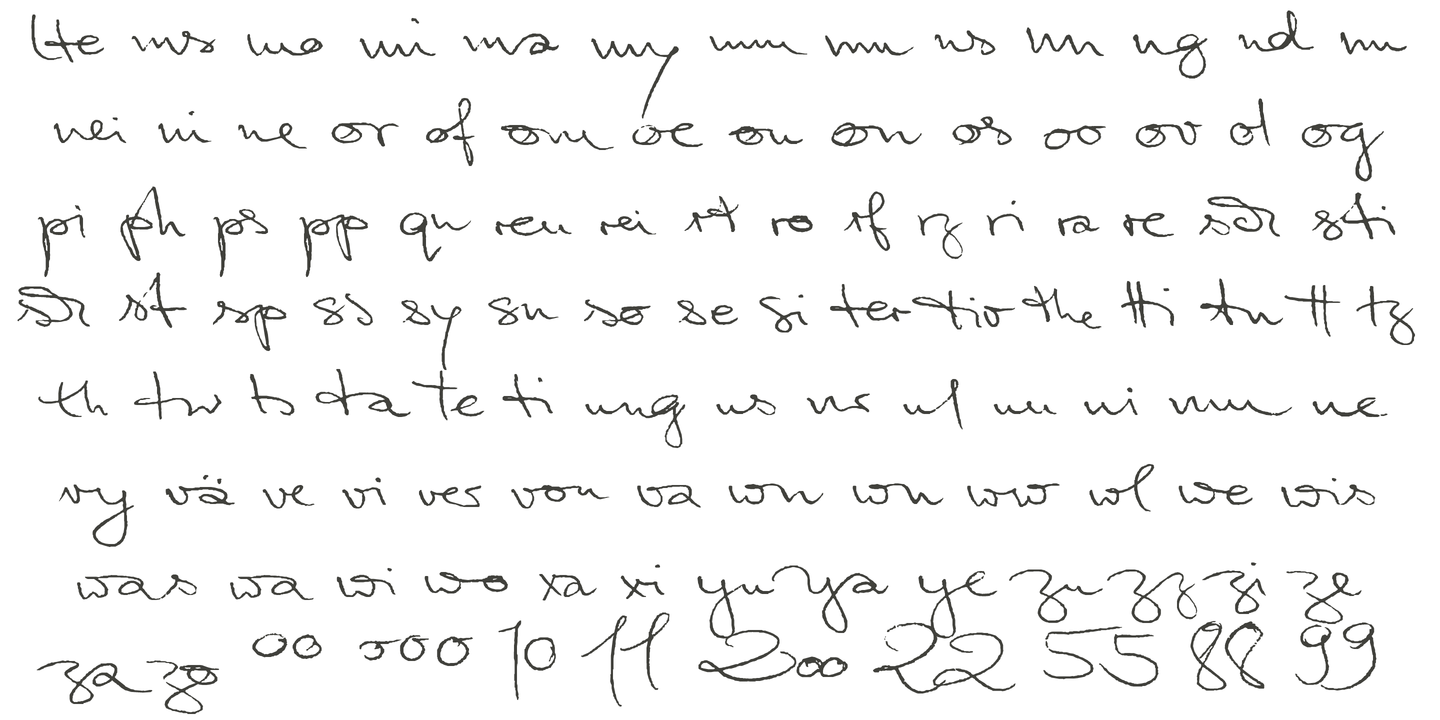 He ms mo mi ma my mm mn ns nn ng nd nu
nei ni ne or of om oe ou on os oo ov ol og
pi ph ps pp qu reu rei rt ro rf rz ri ra re sti
st sp ss sy su so se si ter tio the tti tu tt tz
th tw ts ta te ti ung us ur ul uu ui um ue
vy vä ve vi ver von va wn wn ww wl we wis
was wa wi wo xa xi yu ya ye zu zz zi ze
za zo 00 000 10 11 200 22 55 88 99